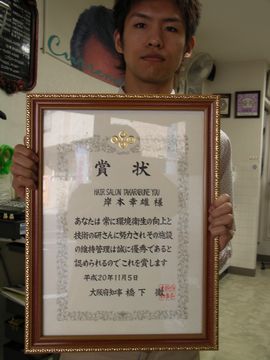 賞状
HAIR SALON TAKARABUNE YOU
岸本幸雄様
あなたは常に環境衛生の向上と
技術の研さんに努力されその施設
の維持管理は誠に優秀であると
認められるのでこれを賞します
平成20年11月5日
大阪府知事 橋下 徹